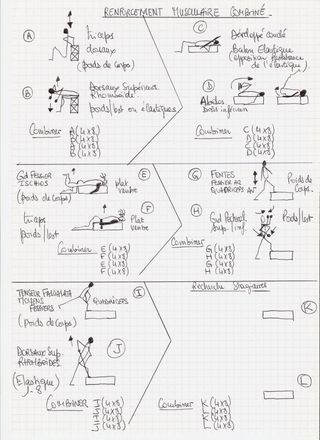 RENFORCEMENT MUSCULAIRE COMBINÉ
A
Triceps
dorsaux
(poids de Corps)
B
Dorsaux Supérieurs
Rhomboïde.
poids/lest ou élastiques
Combiner
A (4x8)
B (4x8)
A (4x8)
B (4x8)
C
Développé couché
ballon Elastique
(opposition
de l'élastique)
D
Abdos
Droit inférieur
Combiner
C (4x8)
D (4x8)
C (4x8)
D (4x8)
E
Gd FESSIER
ISCHIOS
(poids de Corps)
plat
ventre
F
triceps
poids/lest
Plat
ventre
Combiner
E (4x8)
F (4x8)
E (4x8)
F (4x8)
G
FENTES
FESSIER AR
QUADRICEPS AV
Poids de
Corps.
H
Gd Pectoral
Sup. Inf.
Poids/lest
Combiner
G (4x8)
H (4x8)
G (4x8)
H (4x8)
I
TENSEUR FASCIA LATA
MOYENS
FESSIERS
QUADRICEPS
(Poids de Corps)
J
DORSAUX Sup.
RHOMBOIDES.
(Elastique)
J-8
COMBINER
I (4x8)
J (4x8)
I (4x8)
J (4x8)
Recherche Stagiaires
K
L
Combiner
K (4x8)
L (4x8)
K (4x8)
L (4x8)